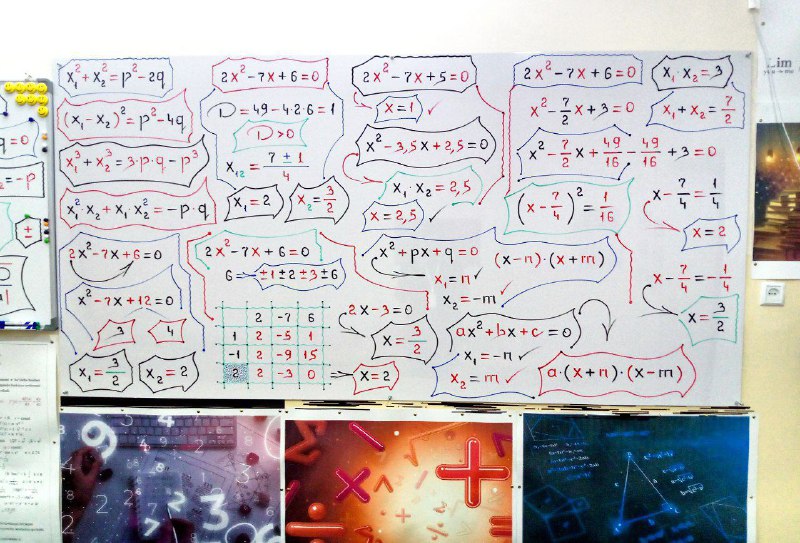 x₁² + x₂² = p² - 2q
(x₁ - x₂)² = p² - 4q
x₁³ + x₂³ = 3·p·q - p³
x₁²·x₂ + x₁·x₂² = -p·q
2x² - 7x + 6 = 0
x² - 7x + 12 = 0
3 4
x₁ = 3/2 x₂ = 2
2x² - 7x + 6 = 0
D = 49 - 4·2·6 = 1
D > 0
x₁₂ = (7 ± 1)/4
x₁ = 2 x₂ = 3/2
2x² - 7x + 6 = 0
6 = ±1 ±2 ±3 ±6
2 -7 6
1 2 -5 1
-1 2 -9 15
2 2 -3 0
2x - 3 = 0
x = 3/2
⇒ x = 2
2x² - 7x + 5 = 0
x = 1 ✓
x² - 3,5x + 2,5 = 0
x₁·x₂ = 2,5
x = 2,5 ✓
x² + px + q = 0
x₁ = n ✓
x₂ = -m ✓
(x - n)·(x + m)
ax² + bx + c = 0
x₁ = -n ✓
x₂ = m ✓
a·(x + n)·(x - m)
2x² - 7x + 6 = 0
x² - 7/2 x + 3 = 0
x² - 7/2 x + 49/16 - 49/16 + 3 = 0
(x - 7/4)² = 1/16
x₁·x₂ = 3
x₁ + x₂ = 7/2
x - 7/4 = 1/4
x = 2
x - 7/4 = -1/4
x = 3/2
q = 0
= -p
±
Lim